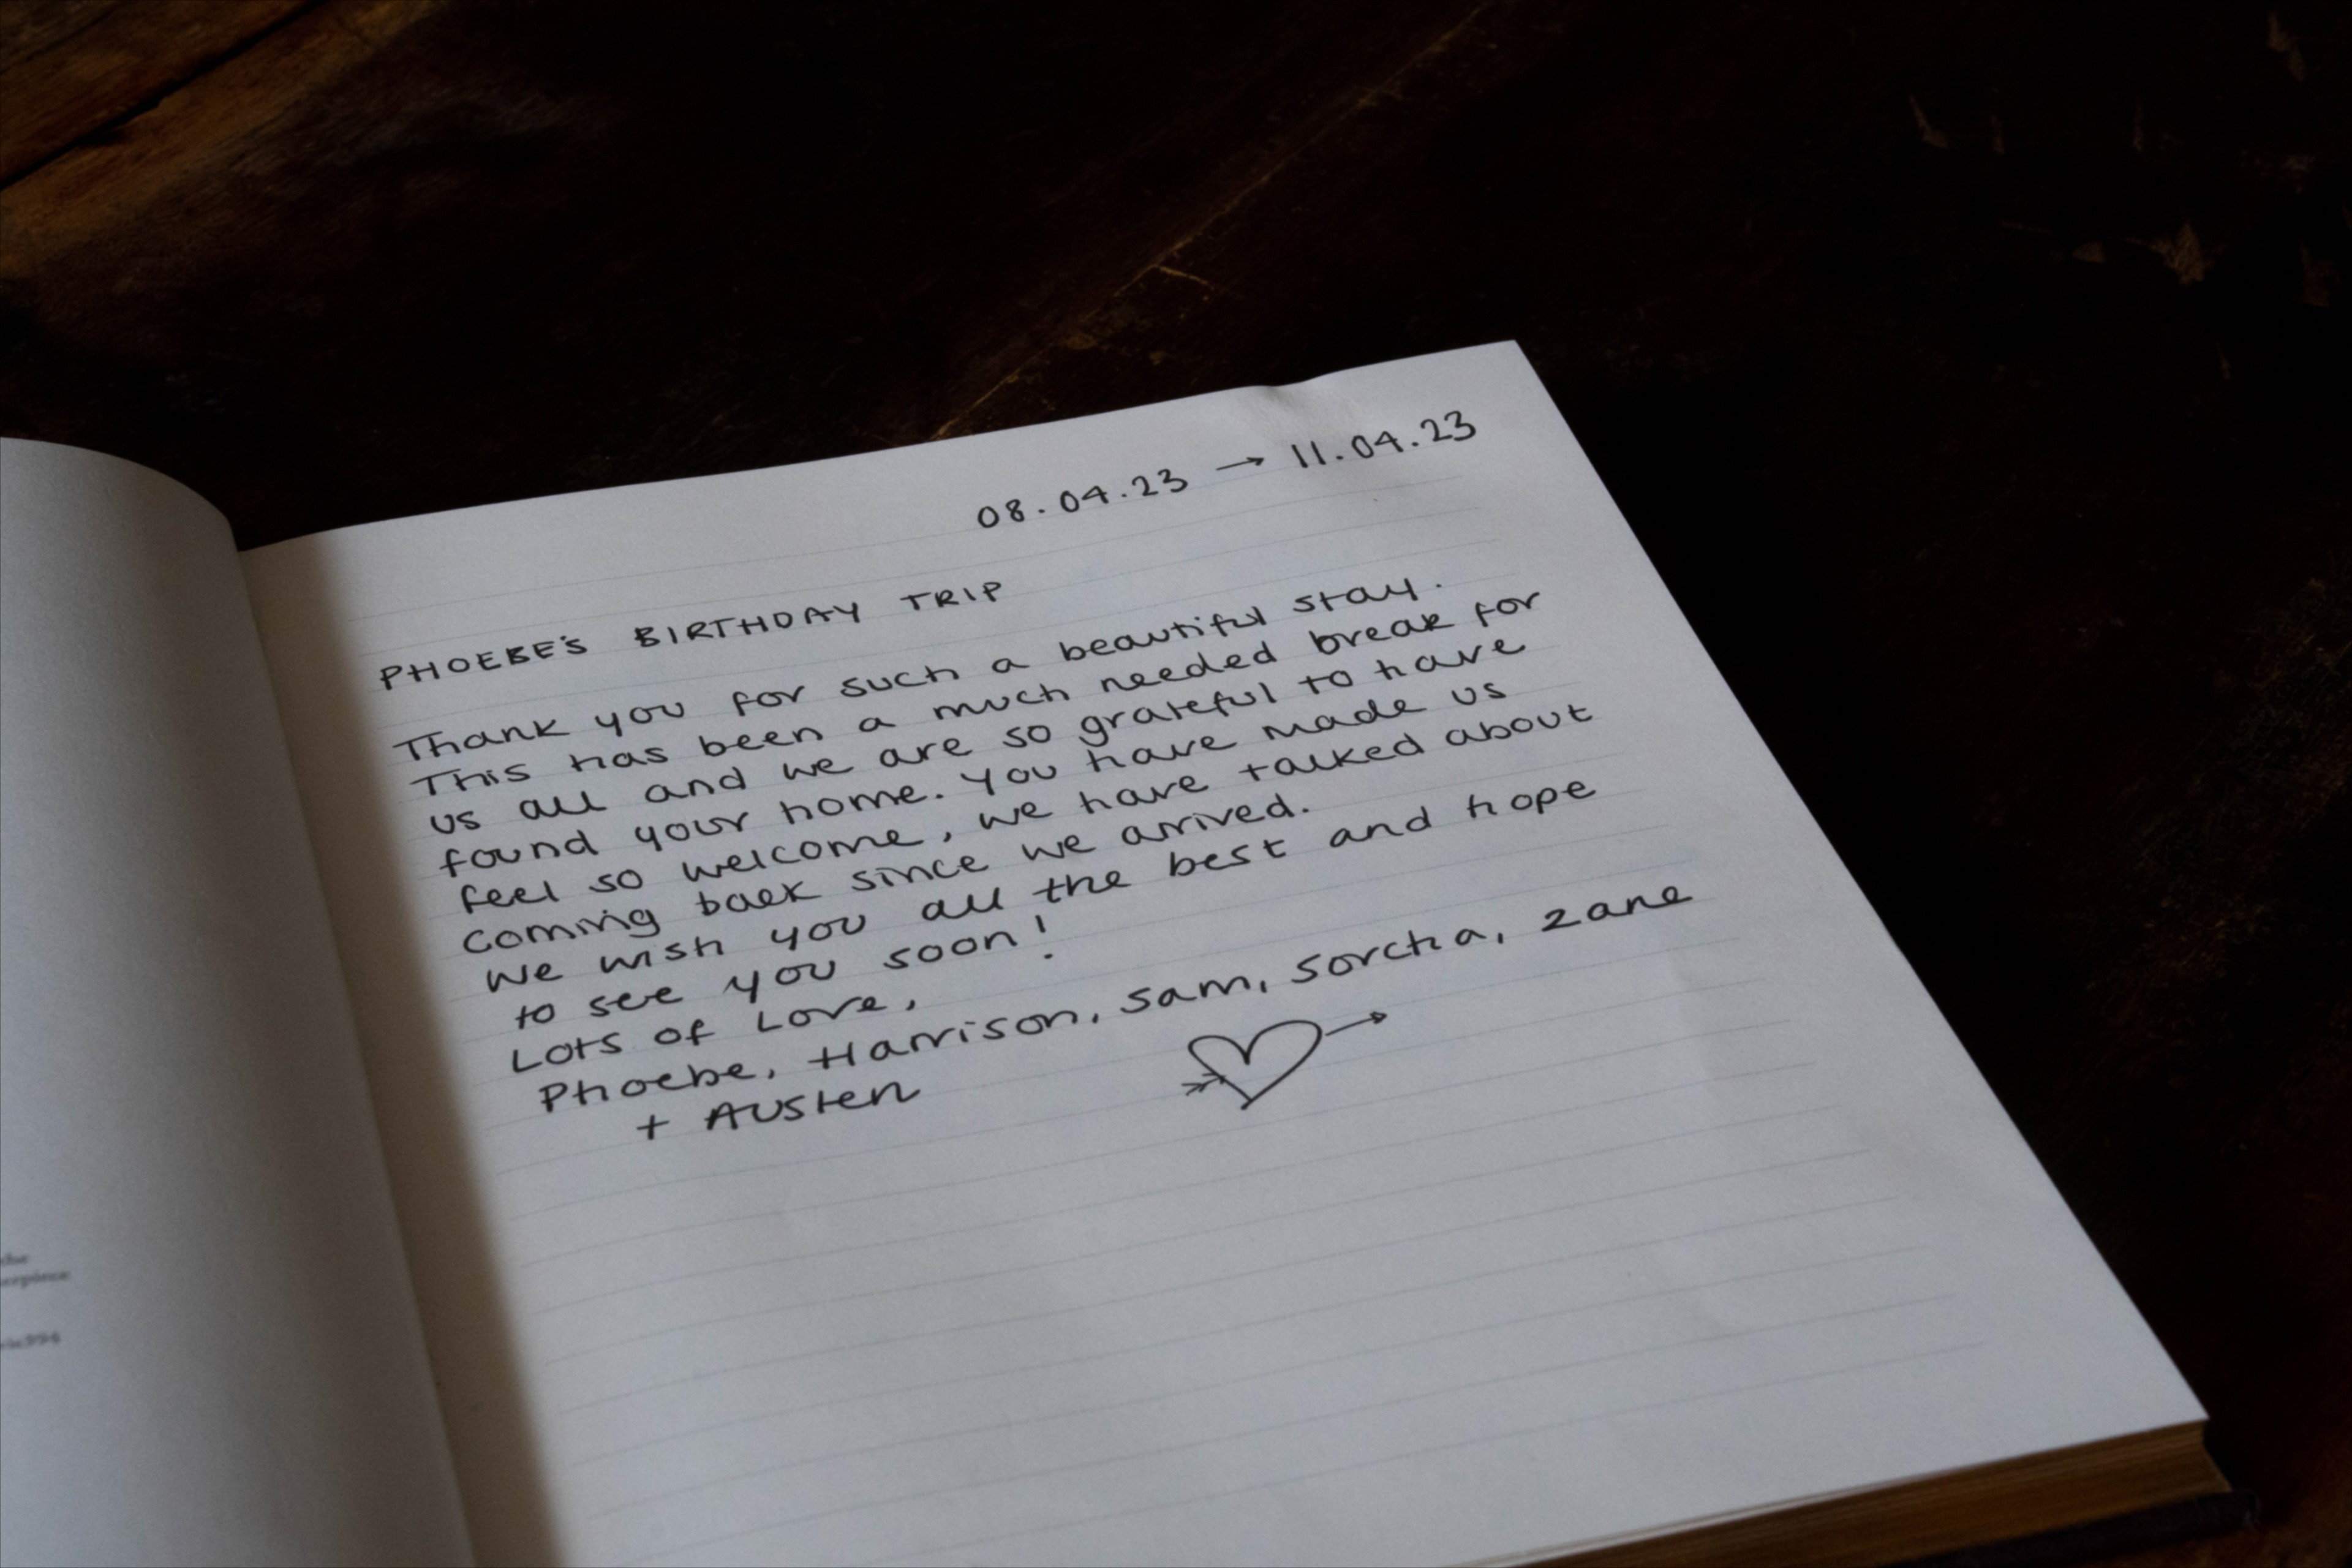 08.04.23 → 11.04.23
PHOEBE'S BIRTHDAY TRIP
Thank you for such a beautiful stay.
This has been a much needed break for
us all and we are so grateful to have
found your home. You have made us
feel so welcome, we have talked about
coming back since we arrived.
We wish you all the best and hope
to see you soon!
Lots of Love,
Phoebe, Harrison, Sam, Sorcha, Zane
+ Austen